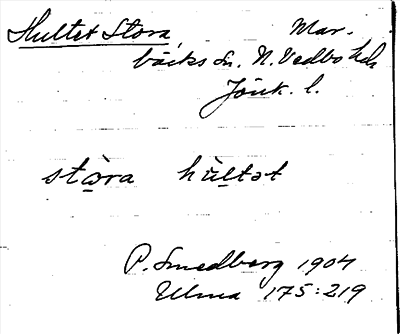 Hultet Stora, Mar-
bäcks Sn. N. Vedbo hd.
Jönk. l.
stò̲ra hùl̲tət
P. Smedberg 1904
Ulma 175:219